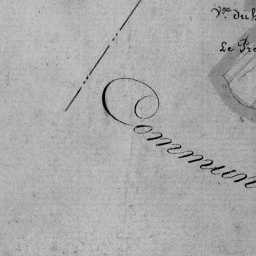 Vve du
Le Pr
Commun